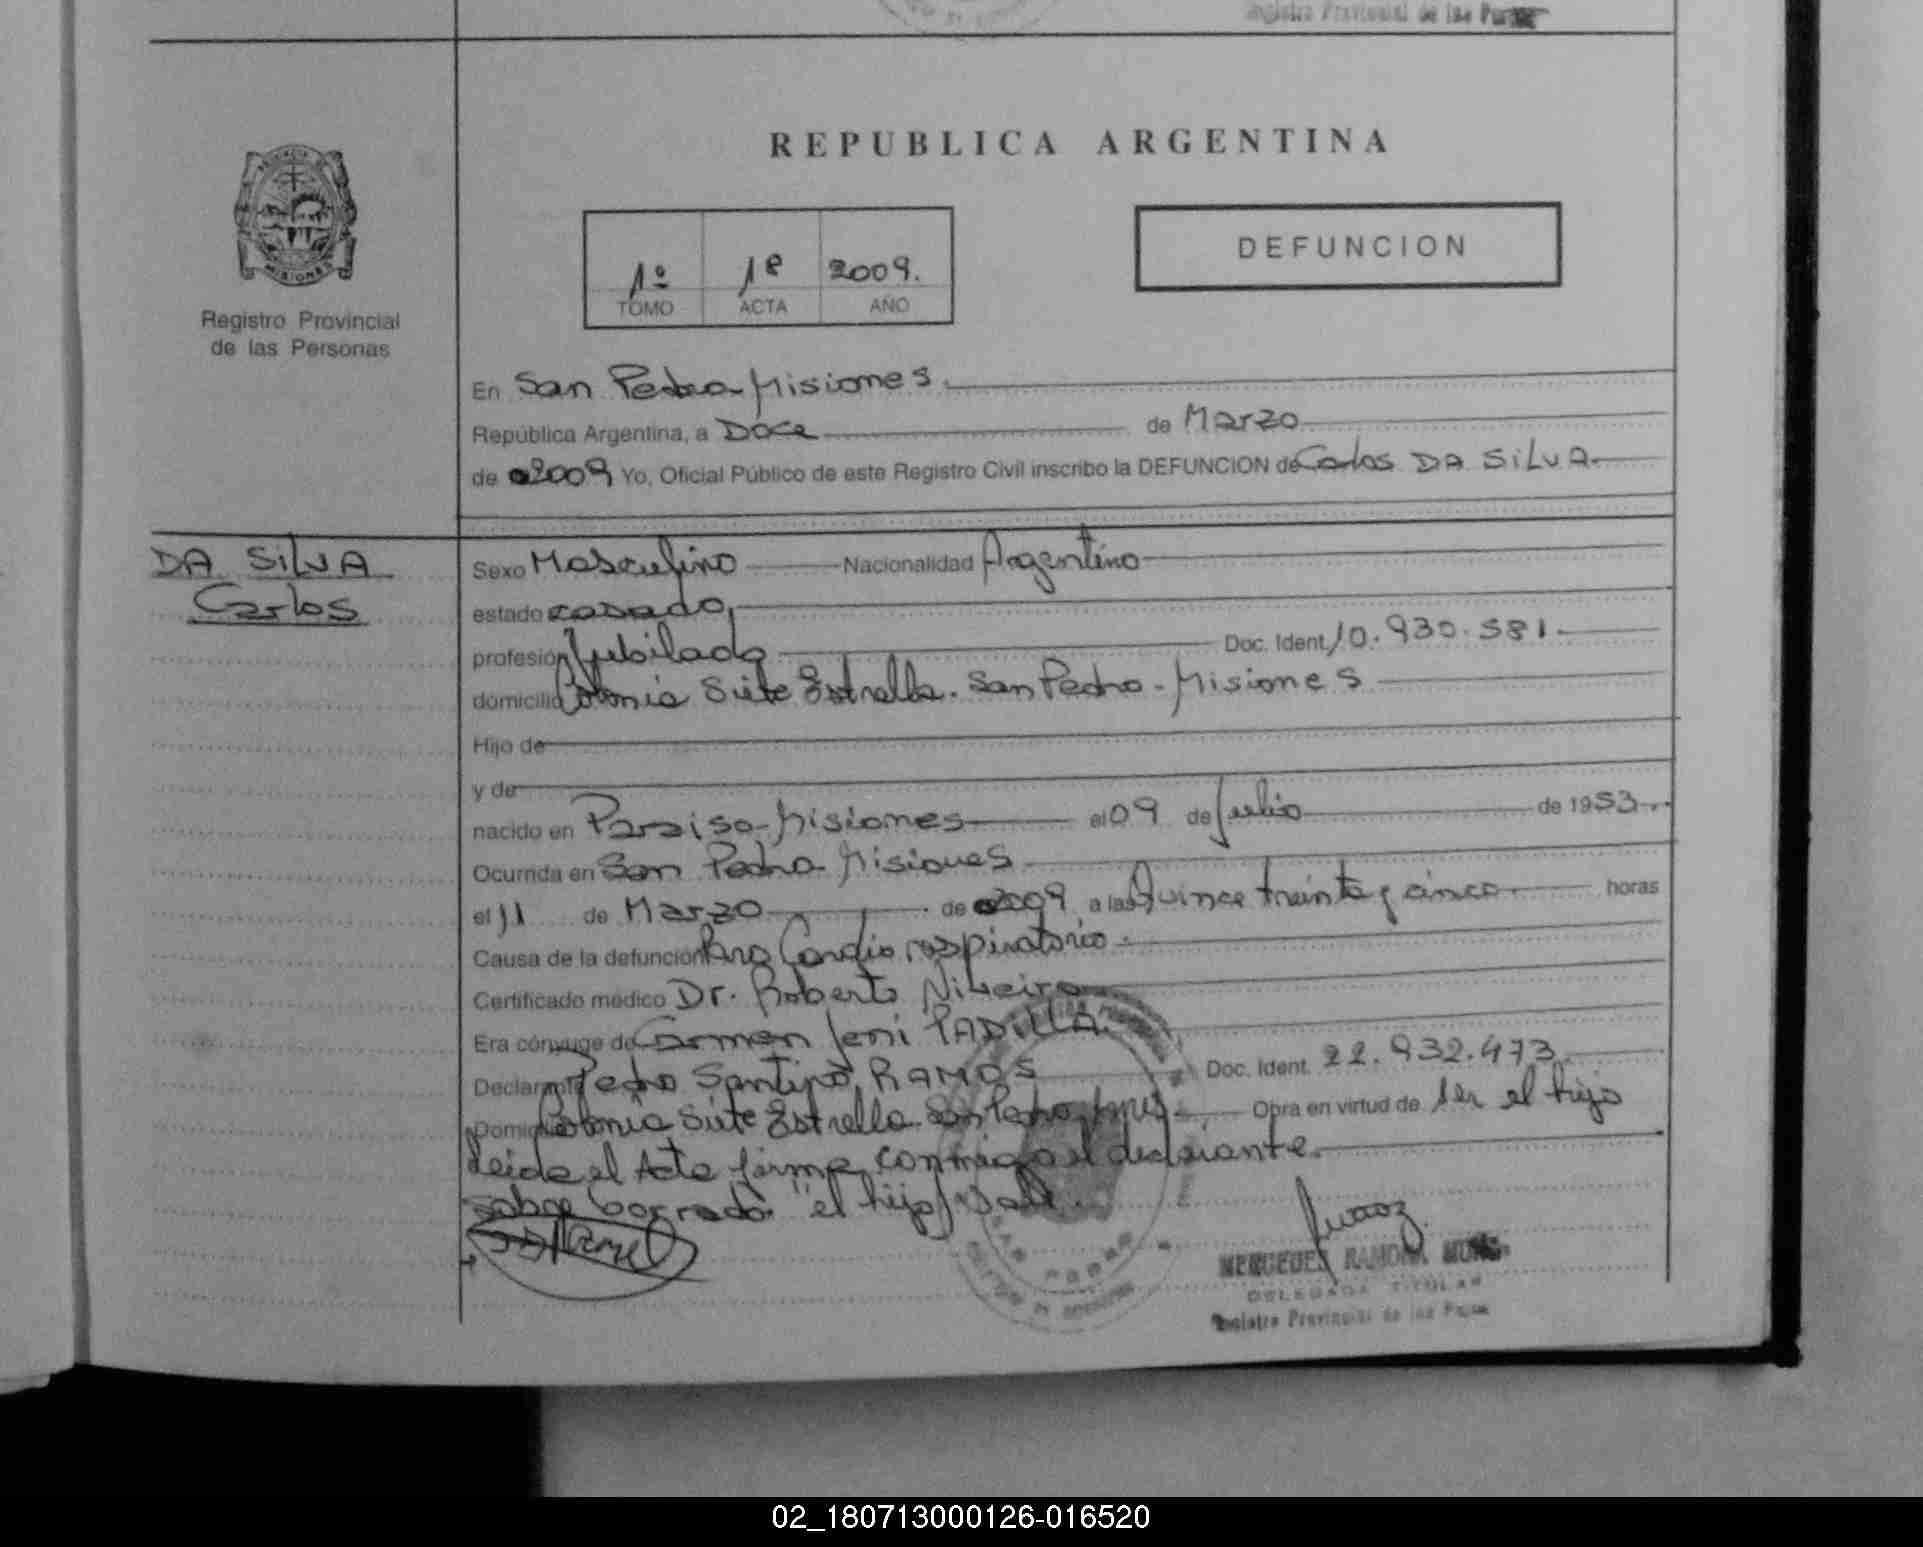 Registro Provincial de las Personas
REPUBLICA ARGENTINA
DEFUNCION
1º 1ª 2009.
TOMO ACTA AÑO
PROVINCIA DE
MISIONES
Registro Provincial
de las Personas
En San Pedro-Misiones.
República Argentina, a Doce de Marzo
de 2009 Yo, Oficial Público de este Registro Civil inscribo la DEFUNCION de Carlos DA SILVA.
DA SILVA
Carlos
Sexo Masculino Nacionalidad Argentino
estado casado,
profesión Jubilado Doc. Ident. 10.930.581.
domicilio Colonia Siete Estrella. San Pedro-Misiones
Hijo de
y de
nacido en Paraiso-Misiones el 09 de Julio de 1953.
Ocurrida en San Pedro-Misiones
el 11 de Marzo de 2009 a las Quince treinta y cinco horas
Causa de la defunción Paro Cardio respiratorio.
Certificado médico Dr. Roberto
Era cónyuge de Carmen Jeni PADILLA.
Declarante Pedro Santino, RAMOS Doc. Ident. 22.932.473.
Domicilio Colonia Siete Estrella. San Pedro, Mnes. Obra en virtud de ser el hijo
Leida el Acta firma conmigo el declarante.
sobre borrado "el hijo" Vale.
MERCEDES RAMONA
DELEGADA TITULAR
Registro Provincial de las Personas
02_180713000126-016520